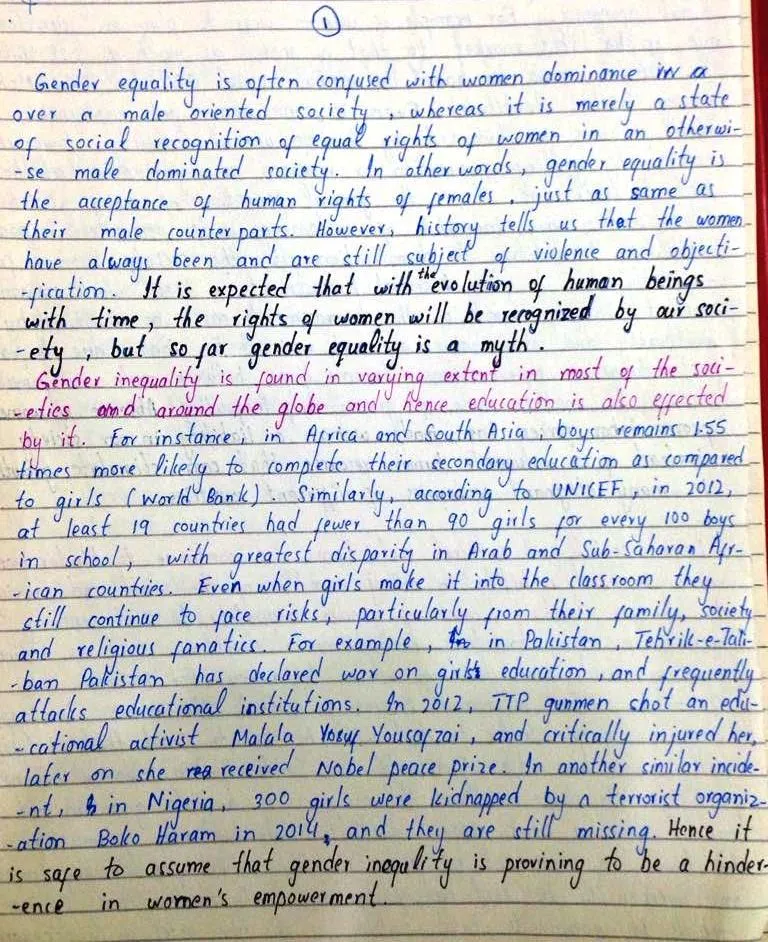 1
Gender equality is often confused with women dominance in a
over a male oriented society, whereas it is merely a state
of social recognition of equal rights of women in an otherwi-
-se male dominated society. In other words, gender equality is
the acceptance of human rights of females, just as same as
their male counter parts. However, history tells us that the women
have always been and are still subject of violence and objecti-
-fication. It is expected that with the evolution of human beings
with time, the rights of women will be recognized by our soci-
-ety, but so far gender equality is a myth.
Gender inequality is found in varying extent in most of the soci-
-eties and around the globe and hence education is also effected
by it. For instance, in Africa and South Asia, boys remains 1.55
times more likely to complete their secondary education as compared
to girls (World Bank). Similarly, according to UNICEF, in 2012,
at least 19 countries had fewer than 90 girls for every 100 boys
in school, with greatest disparity in Arab and Sub-Saharan Afr-
-ican countries. Even when girls make it into the class room they
still continue to face risks, particularly from their family, society
and religious fanatics. For example, in Pakistan, Tehrik-e-Tali-
-ban Pakistan has declared war on girls education, and frequently
attacks educational institutions. In 2012, TTP gunmen shot an edu-
-cational activist Malala Yosuf Yousafzai, and critically injured her,
later on she received Nobel peace prize. In another similar incide-
-nt, in Nigeria, 300 girls were kidnapped by a terrorist organiz-
-ation Boko Haram in 2014, and they are still missing. Hence it
is safe to assume that gender inequlity is provining to be a hinder-
-ence in women's empowerment.